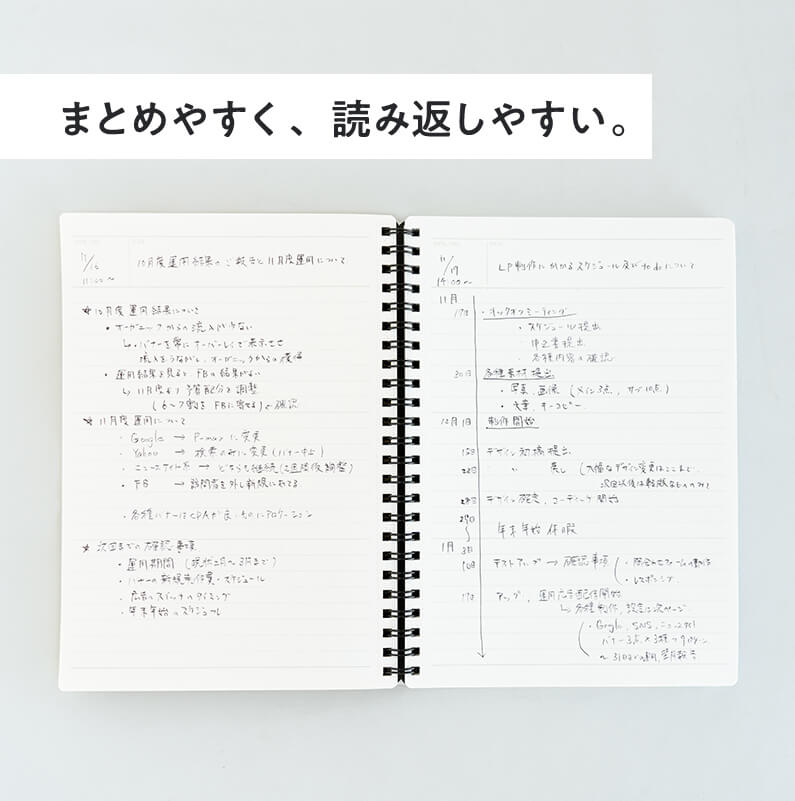 まとめやすく、読み返しやすい。
11/10
11:00〜
10月度運用結果のご報告と11月度運用について
★10月度運用結果について
・オーガニックからの流入が少ない
↳バナーを常にオーバーレイで表示させ
流入をうながし、オーガニックからの獲得
・運用結果を見るとFBの結果がよい
↳11月度より予算配分を調整
(6〜7割をFBに寄せる)を確認
★11月度運用について
・Google → P-maxに変更
・Yahoo → 検索のみに変更(バナー中止)
・ニュースサイト系 → どちらも継続
・FB → 訪問者を外し新規にあてる
・各種バナーはCPAが良いものにアロケーション
★次回までの確認事項
・運用期間(現状2月〜3月まで)
・バナーの新規制作費・スケジュール
・広告のスイッチのタイミング
・年末年始のスケジュール
11/17
14:00〜
LP制作にかかるスケジュール及びto doについて
11月
17日 ・キックオフミーティング
・スケジュール提出
・申込書提出
・各種内容の確認
30日 各種素材提出
・写真、画像(メイン3点、サブ10点)
・文章、キーコピー
12月1日 制作開始
15日 デザイン初稿提出
22日 〃 戻し(大幅なデザイン変更はここまで
次回以後は軽微なもののみ)
28日 デザイン確定、コーディング開始
29日
〜 年末年始休暇
1月3日
10日 テストアップ → 確認事項(・問合わせフォームの動作
・レスポンシブ
17日 アップ、運用広告配信開始
↳各種制作、設定は次ページ
・Google、SNS、ニュースサイト
バナー3点×3種=9パターン